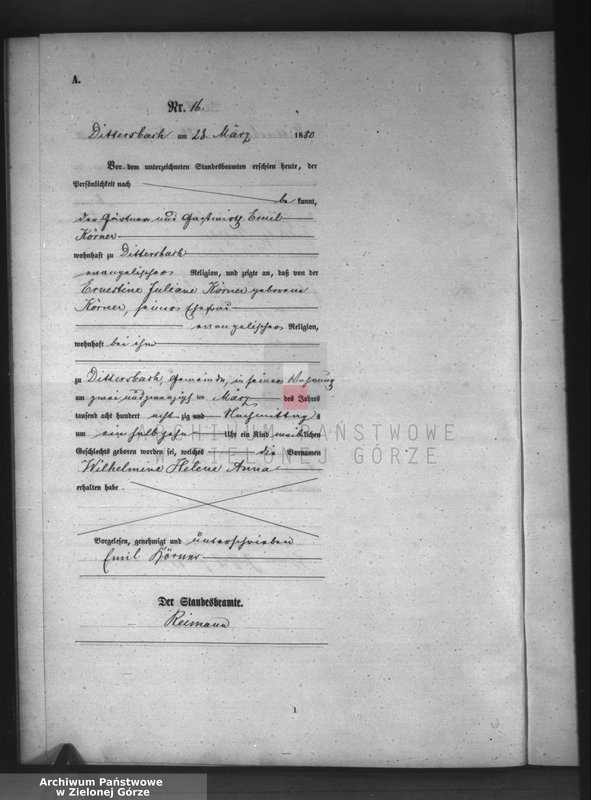 A.
Nr. 16.
Dittersbach am 23. März 1880
Vor dem unterzeichneten Standesbeamten erschien heute, der
Persönlichkeit nach
be kannt,
der Gärtner und Gastwirth Emil
Körner
wohnhaft zu Dittersbach
evangelischer Religion, und zeigte an, daß von der
Ernestine Juliane Körner geborene
Körner, seiner Ehefrau
evangelischer Religion,
wohnhaft bei ihm
zu Dittersbach, Gemeinde, in seiner Wohnung
am zwei und zwanzigsten März des Jahres
tausend acht hundert acht zig und Nachmittags
um ein halb zehn Uhr ein Kind weiblichen
Geschlechts geboren worden sei, welches die Vornamen
Wilhelmine Helene Anna
erhalten habe.
Vorgelesen, genehmigt und unterschrieben
Emil Körner
Der Standesbeamte.
Reimann
1
ARCHIWUM PAŃSTWOWE
W ZIELONEJ GÓRZE
Archiwum Państwowe
w Zielonej Górze